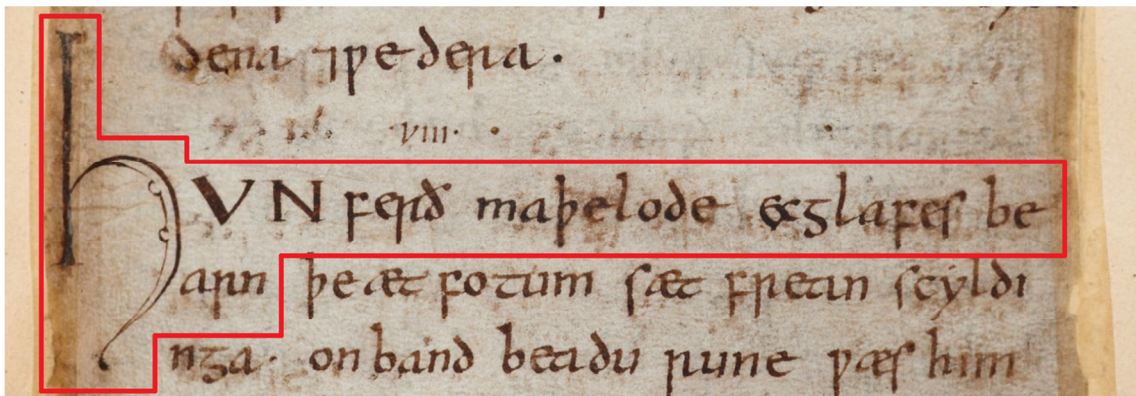 dena ⁊ƿe dera·
·viii·
HVN ferð maþelode ecglafes be
arn þe æt fotum sæt frean scyldi
nga· onband beadu rune ƿæs him